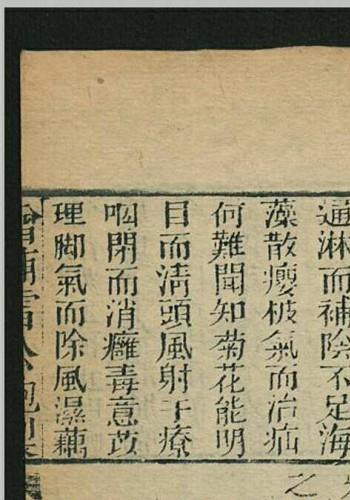 通淋而補陰不足海
藻散癭破氣而治疝
何難聞知菊花能明
目而清頭風射干療
咽閉而消癰毒意苡
理脚氣而除風濕藕
之